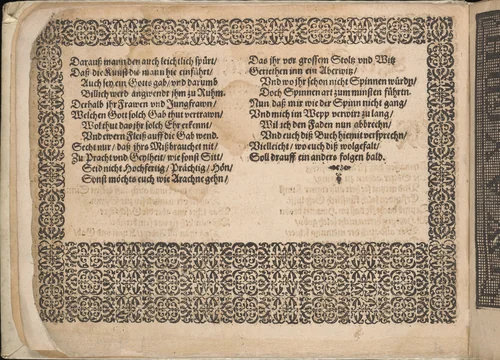 Darauß mann den auch leichtlich spürt/
Daß die Kunst die mann hie einführt/
Auch sey ein Gottes gab/ vnd darumb
Billich werd angwendt jhm zu Ruhm.
Derhalb jhr Frawen vnd Jungfrawn/
Welchen Gott solch Gab thut vertrawn/
Wol thut das jhr solch Ehr erkennt
Vnd ewren Fleiß auff die Gab wend.
Secht nur/ daß jhrs Mißbrauchet nit/
Zu Pracht vnd Geylheit/ wie sonst Sitt/
Seid nicht Hochfertig/ Prächtig/ Hön/
Sonst möchts euch wie Arachne gehn/
Das jhr vor grossem Stoltz vnd Witz
Geriethen inn ein Aberwitz/
Vnd wo jhr schon nicht Spinnen würdn/
Doch Spinnen art zum minsten führtn.
Nun daß mir wie der Spinn nicht gang/
Vnd mich im Wepp verwirr zu lang/
Wil ich den Faden nun abbrechn/
Vnd euch diß Buch hiemit versprechn/
Vielleicht/ wo euch diß wolgefalt/
Soll drauff ein anders folgen bald.